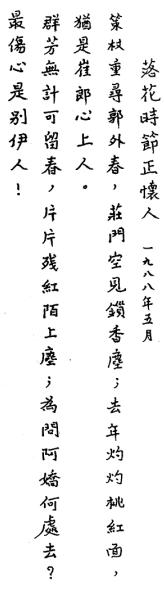 落花時節正懷人 一九八八年五月
策杖重尋郭外春，莊門空見鎖香塵；去年灼灼桃紅面，
猶是崔郎心上人。
群芳無計可留春，片片残紅陌上塵；為問阿嬌何處去？
最傷心是別伊人！